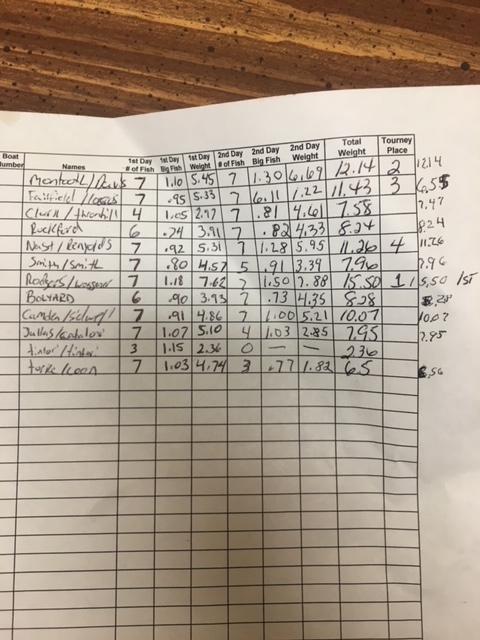 Boat Number Names 1st Day # of Fish 1st Day Big Fish 1st Day Weight 2nd Day # of Fish 2nd Day Big Fish 2nd Day Weight Total Weight Tourney Place
7 1.10 5.45 7 1.30 6.69 12.14 2 12.14
Fairfield / 7 .95 5.33 7 6.11 1.22 11.43 3
Clark / 4 1.05 2.97 7 .81 4.61 7.58
Rockford 6 .74 3.91 7 .82 4.33 8.24 8.24
Nast / Reynolds 7 .92 5.31 7 1.28 5.95 11.26 4 11.26
Smith / Smith 7 .80 4.57 5 .91 3.39 7.96 7.96
Rodgers / 7 1.18 7.62 7 1.50 7.88 15.50 1 15.50 1ST
BOLYARD 6 .90 3.93 7 .73 4.35 8.28 8.28
Camden / 7 .91 4.86 7 1.00 5.21 10.07 10.07
Dallas / 7 1.07 5.10 4 1.03 2.85 7.95 7.95
3 1.15 2.36 0 — — 2.36
7 1.03 4.74 3 .77 1.82 6.5